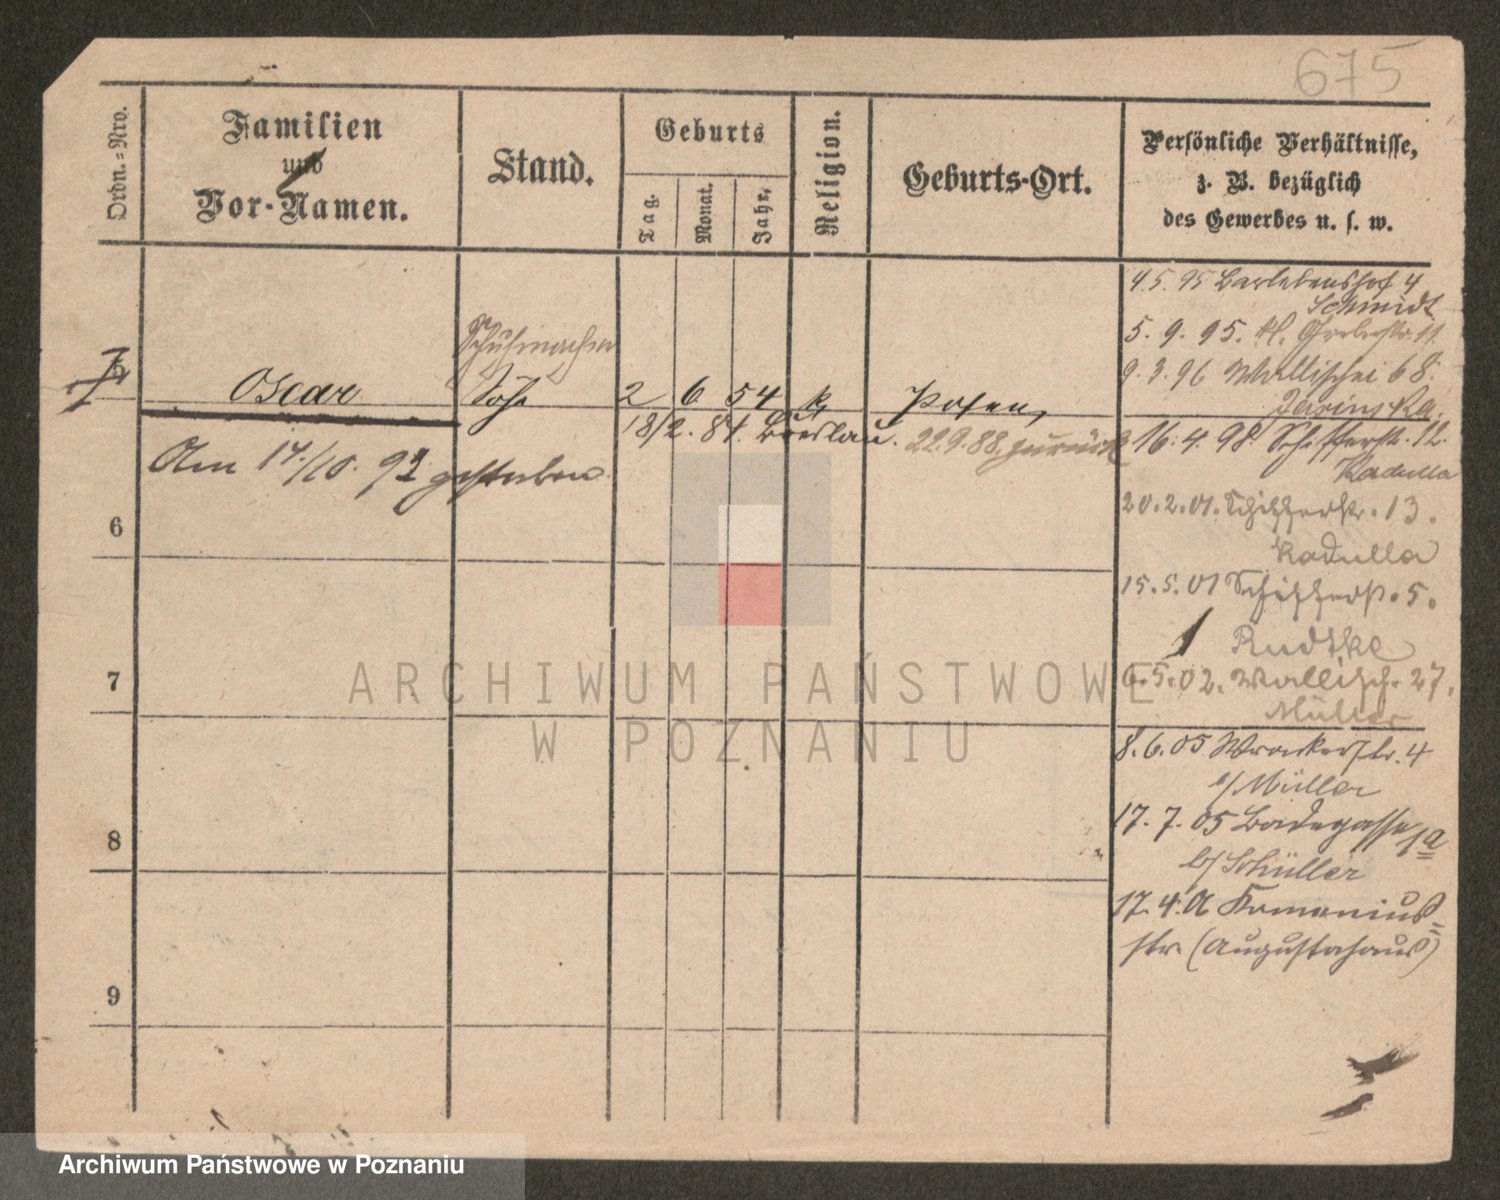 675
Ordn.=Nro.
Familien
und
Vor-Namen.
Stand.
Geburts
Tag.
Monat.
Jahr.
Religion.
Geburts-Ort.
Persönliche Verhältnisse,
z. B. bezüglich
des Gewerbes u. s. w.
7
Oscar
Schuhmacher
Sohn
2 6 54 k
Posen,
18/2. 84. Breslau. 22.9.88. zurück
Am 17/10. 92 gestorben
6
7
8
9
4.5.95 Barlebenshof 4
Schmidt
5. 9. 95. kl. Gerberstr. 11
9.3.96 Wallischei 68.
16. 4. 98. Schifferstr. 12.
Kadulla
20.2.01. Schifferstr. 13.
Kadulla
15.5.01 Schifferstr. 5.
Rudtke
6.5.02. Wallisch. 27.
Müller
8.6.05 Wronkerstr. 4
b/Müller
17. 7. 05 Badegasse 1a
b/Schüller
17. 4. Komenius-
str. (Augustahaus)
ARCHIWUM PAŃSTWOWE
W POZNANIU
Archiwum Państwowe w Poznaniu